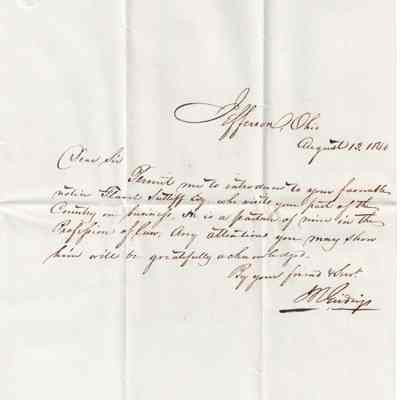 Jefferson, Ohio
August 12, 1840
Dear Sir
Permit me to introduce to your favorable
notice Flavel Sutliff Esq. who visits your part of the
Country on business. He is a partner of mine in the
Profession of law. Any attentions you may show
him will be gratefully acknowledged.
By your friend & Servt.
J R Giddings